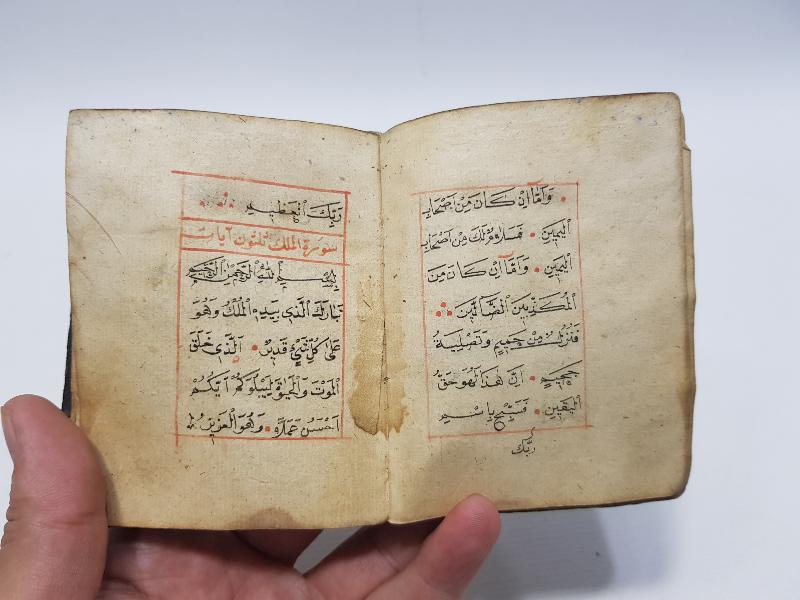 وَاَمَّا اِنْ كَانَ مِنْ اَصْحَابِ
الْيَمِينِ • فَسَلَامٌ لَكَ مِنْ اَصْحَابِ
الْيَمِينِ • وَاَمَّا اِنْ كَانَ مِنَ
الْمُكَذِّبِينَ الضَّالِّينَ
فَنُزُلٌ مِنْ حَمِيمٍ وَتَصْلِيَةُ
جَحِيمٍ • اِنَّ هٰذَا لَهُوَ حَقُّ
الْيَقِينِ • فَسَبِّحْ بِاسْمِ
رَبِّكَ
رَبِّكَ الْعَظِيمِ
سورة الملك ثلثون آيات
بِسْمِ اللهِ الرَّحْمٰنِ الرَّحِيمِ
تَبَارَكَ الَّذِى بِيَدِهِ الْمُلْكُ وَهُوَ
عَلٰى كُلِّ شَيْءٍ قَدِيرٌ • اَلَّذِى خَلَقَ
الْمَوْتَ وَالْحَيٰوةَ لِيَبْلُوَكُمْ اَيُّكُمْ
اَحْسَنُ عَمَلًا • وَهُوَ الْعَزِيزُ